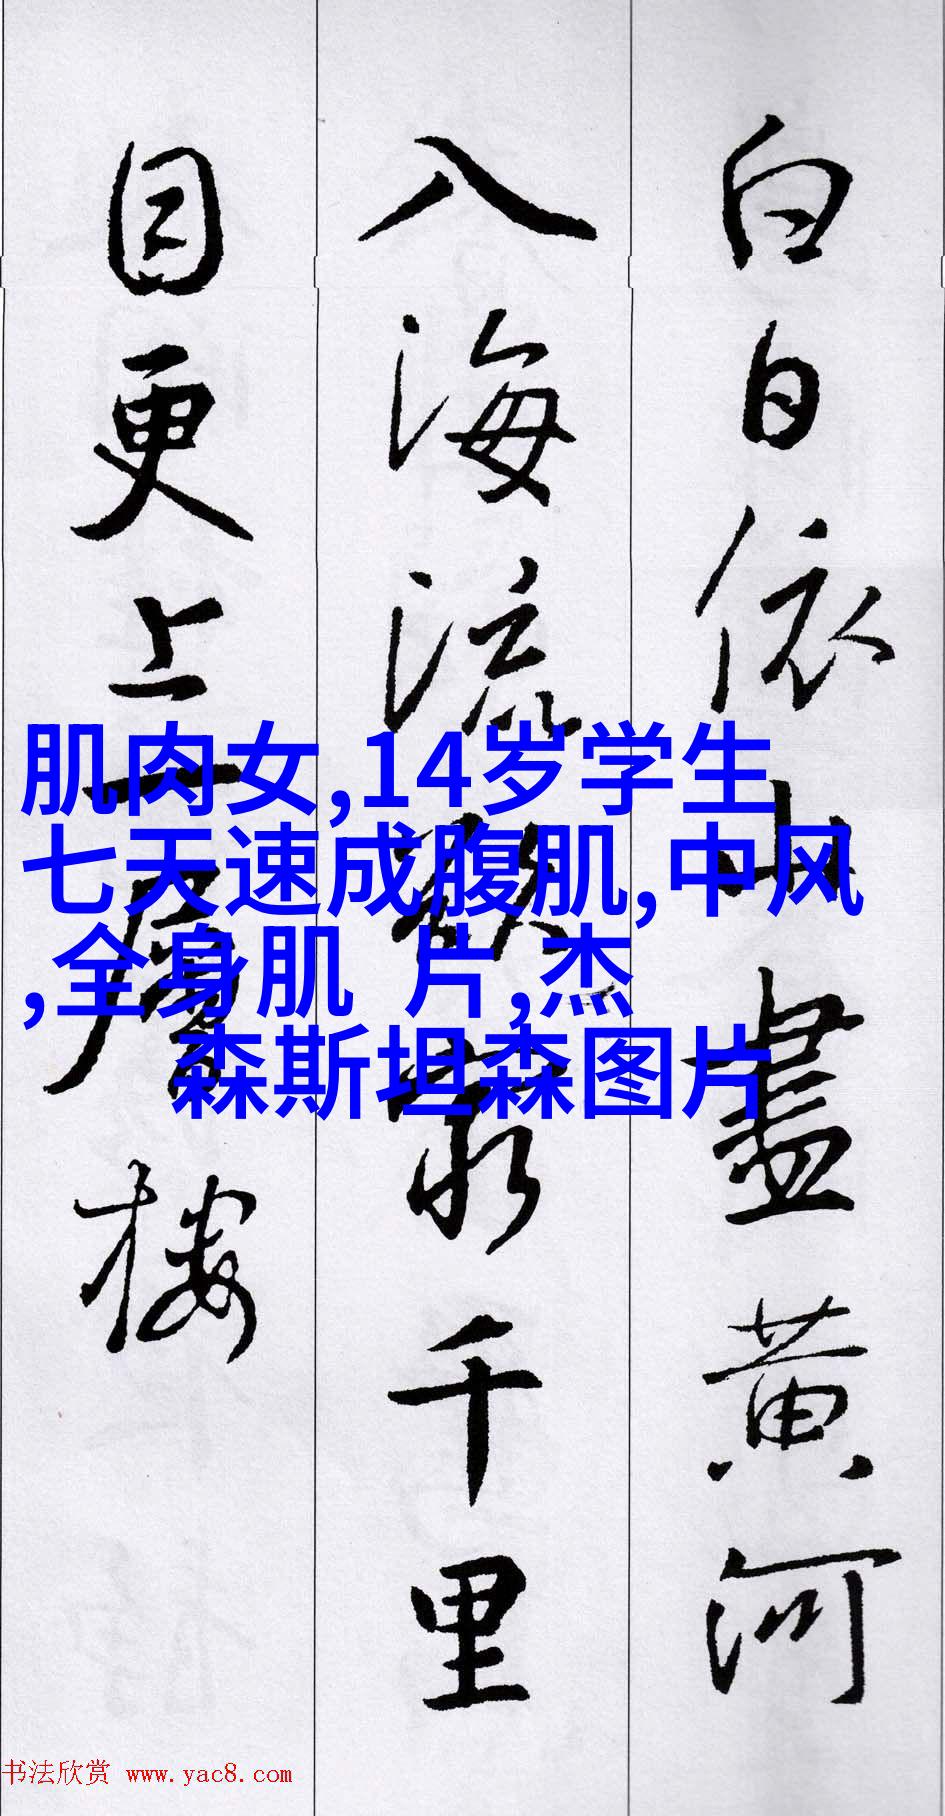 白日依山盡黄河
入海流欲窮千里
目更上一層樓
肌肉女,14岁学生
七天速成腹肌,中风
,全身肌 片,杰
森斯坦森图片
书法欣赏 www.yac8.com